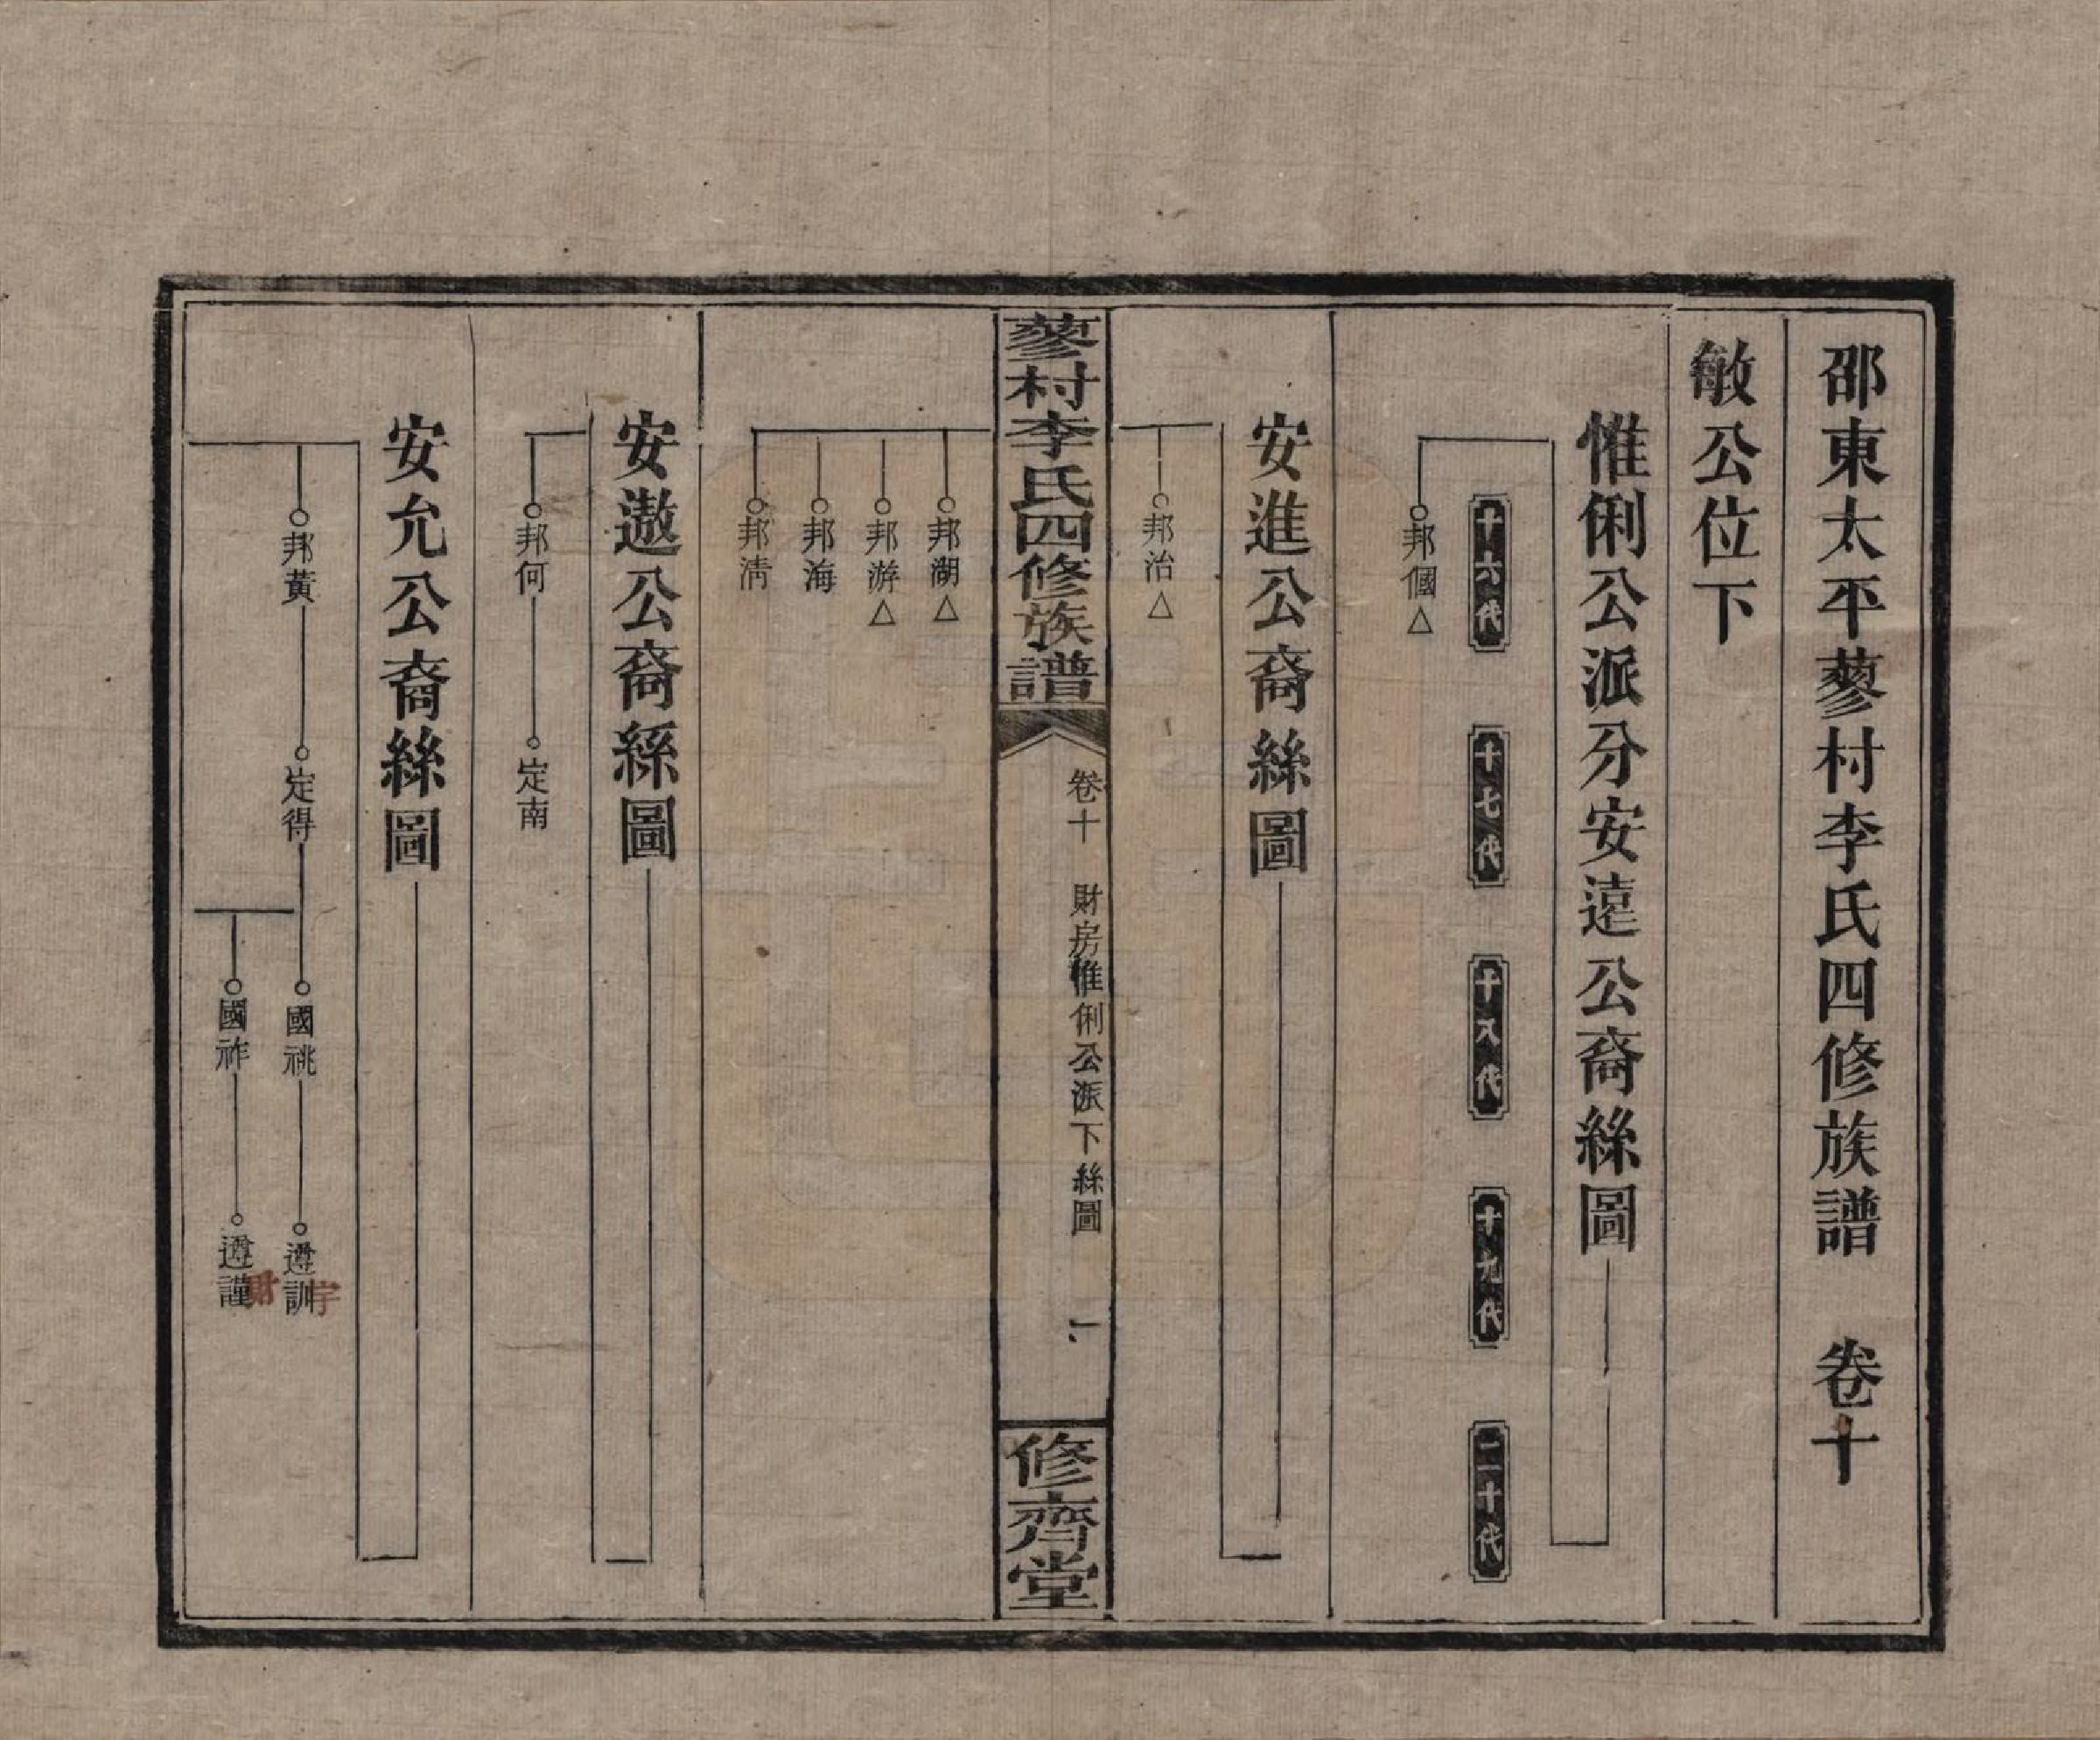 邵東太平蓼村李氏四修族譜 卷十
敏公位下
惟俐公派分安遠公裔絲圖
十六代 十七代 十八代 十九代 二十代
邦個△
安進公裔絲圖
邦治△
蓼村李氏四修族譜
卷十 財房惟俐公派下絲圖 一
修齊堂
邦湖△
邦游△
邦海
邦淸
安遨公裔絲圖
邦何 定南
安允公裔絲圖
邦黃 定得 國祧 遵訓
宇
國祚 遵謹
財